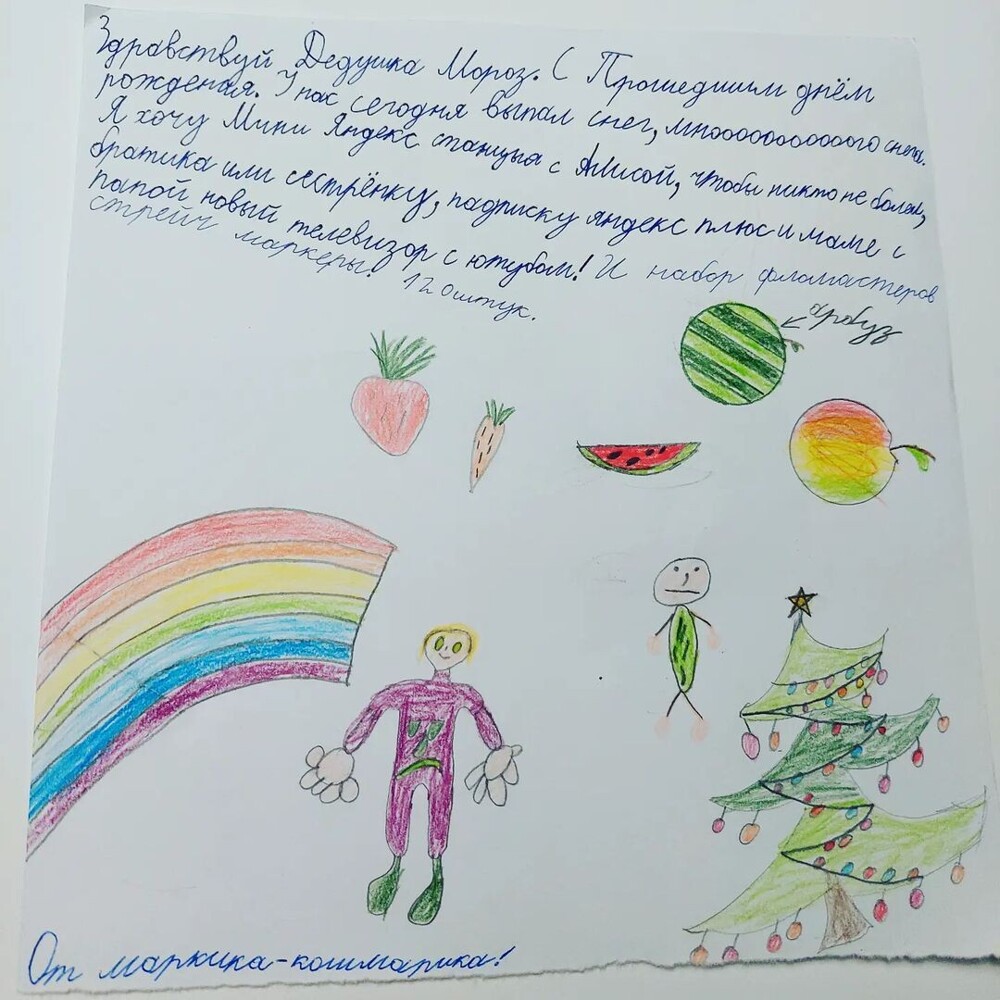 Здравствуй Дедушка Мороз. С Прошедшим днём
рожденя. У нас сегодня выпал снег, мнооооооооооого снега.
Я хочу Мини Яндекс станцыя с Алисой, чтобы никто не болел,
братика или сестрёнку, падписку яндекс плюс и маме с
папой новый телевизор с ютубом! И набор фломастеров
стрейч маркеры! 120штук.
арбуз
От маркика-кошмарика!